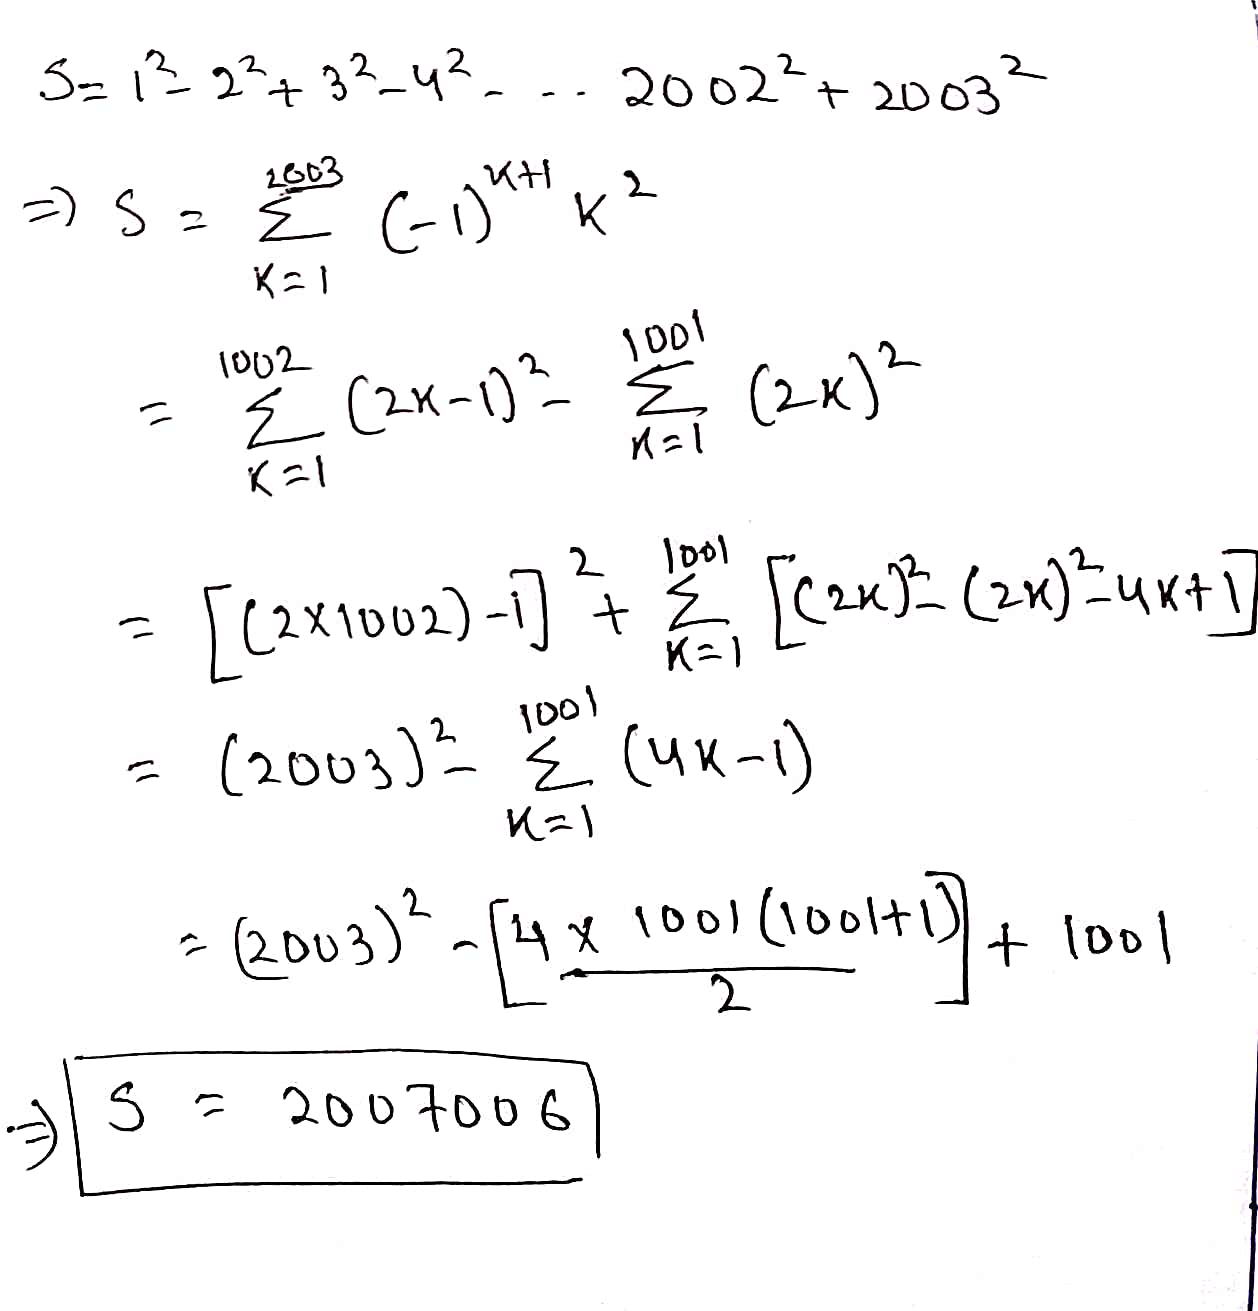 S = 1² - 2² + 3² - 4² - ... 2002² + 2003²
⇒ S = ∑_{K=1}^{2003} (-1)^{K+1} K²
= ∑_{K=1}^{1002} (2K-1)² - ∑_{K=1}^{1001} (2K)²
= [(2×1002)-1]² + ∑_{K=1}^{1001} [(2K)² - (2K)² - 4K+1]
= (2003)² - ∑_{K=1}^{1001} (4K-1)
= (2003)² - [4 × 1001(1001+1) / 2] + 1001
⇒ S = 2007006